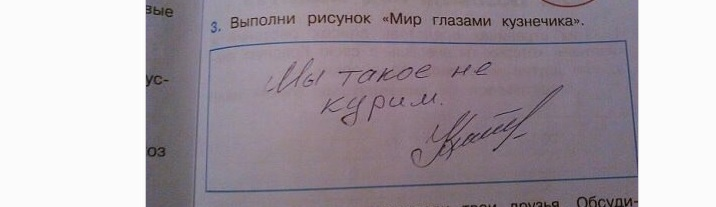 вые
3. Выполни рисунок «Мир глазами кузнечика».
ус-
Мы такое не
курим.
оз
твои друзья. Обсуди-